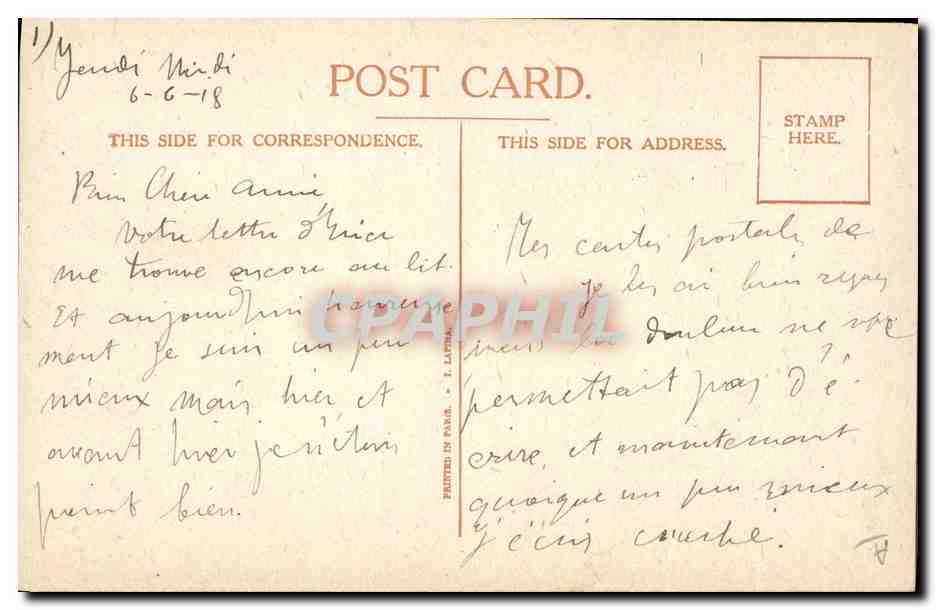 1)
Jeudi Midi
6-6-18
POST CARD.
THIS SIDE FOR CORRESPONDENCE.
THIS SIDE FOR ADDRESS.
STAMP
HERE.
Bien Chère Amie,
Votre lettre d'hier
me trouve encore au lit.
Et aujourd'hui heureuse
ment je suis un peu
mieux mais hier et
avant hier je n'étais
point bien.
PRINTED IN PARIS. • I. LAPINA.
CPAPHIL
Mes cartes postales de
je les ai bien reçues
mais la douleur ne me
permettait pas d'é-
crire, et maintenant
quoique un peu mieux
j'écris couché.